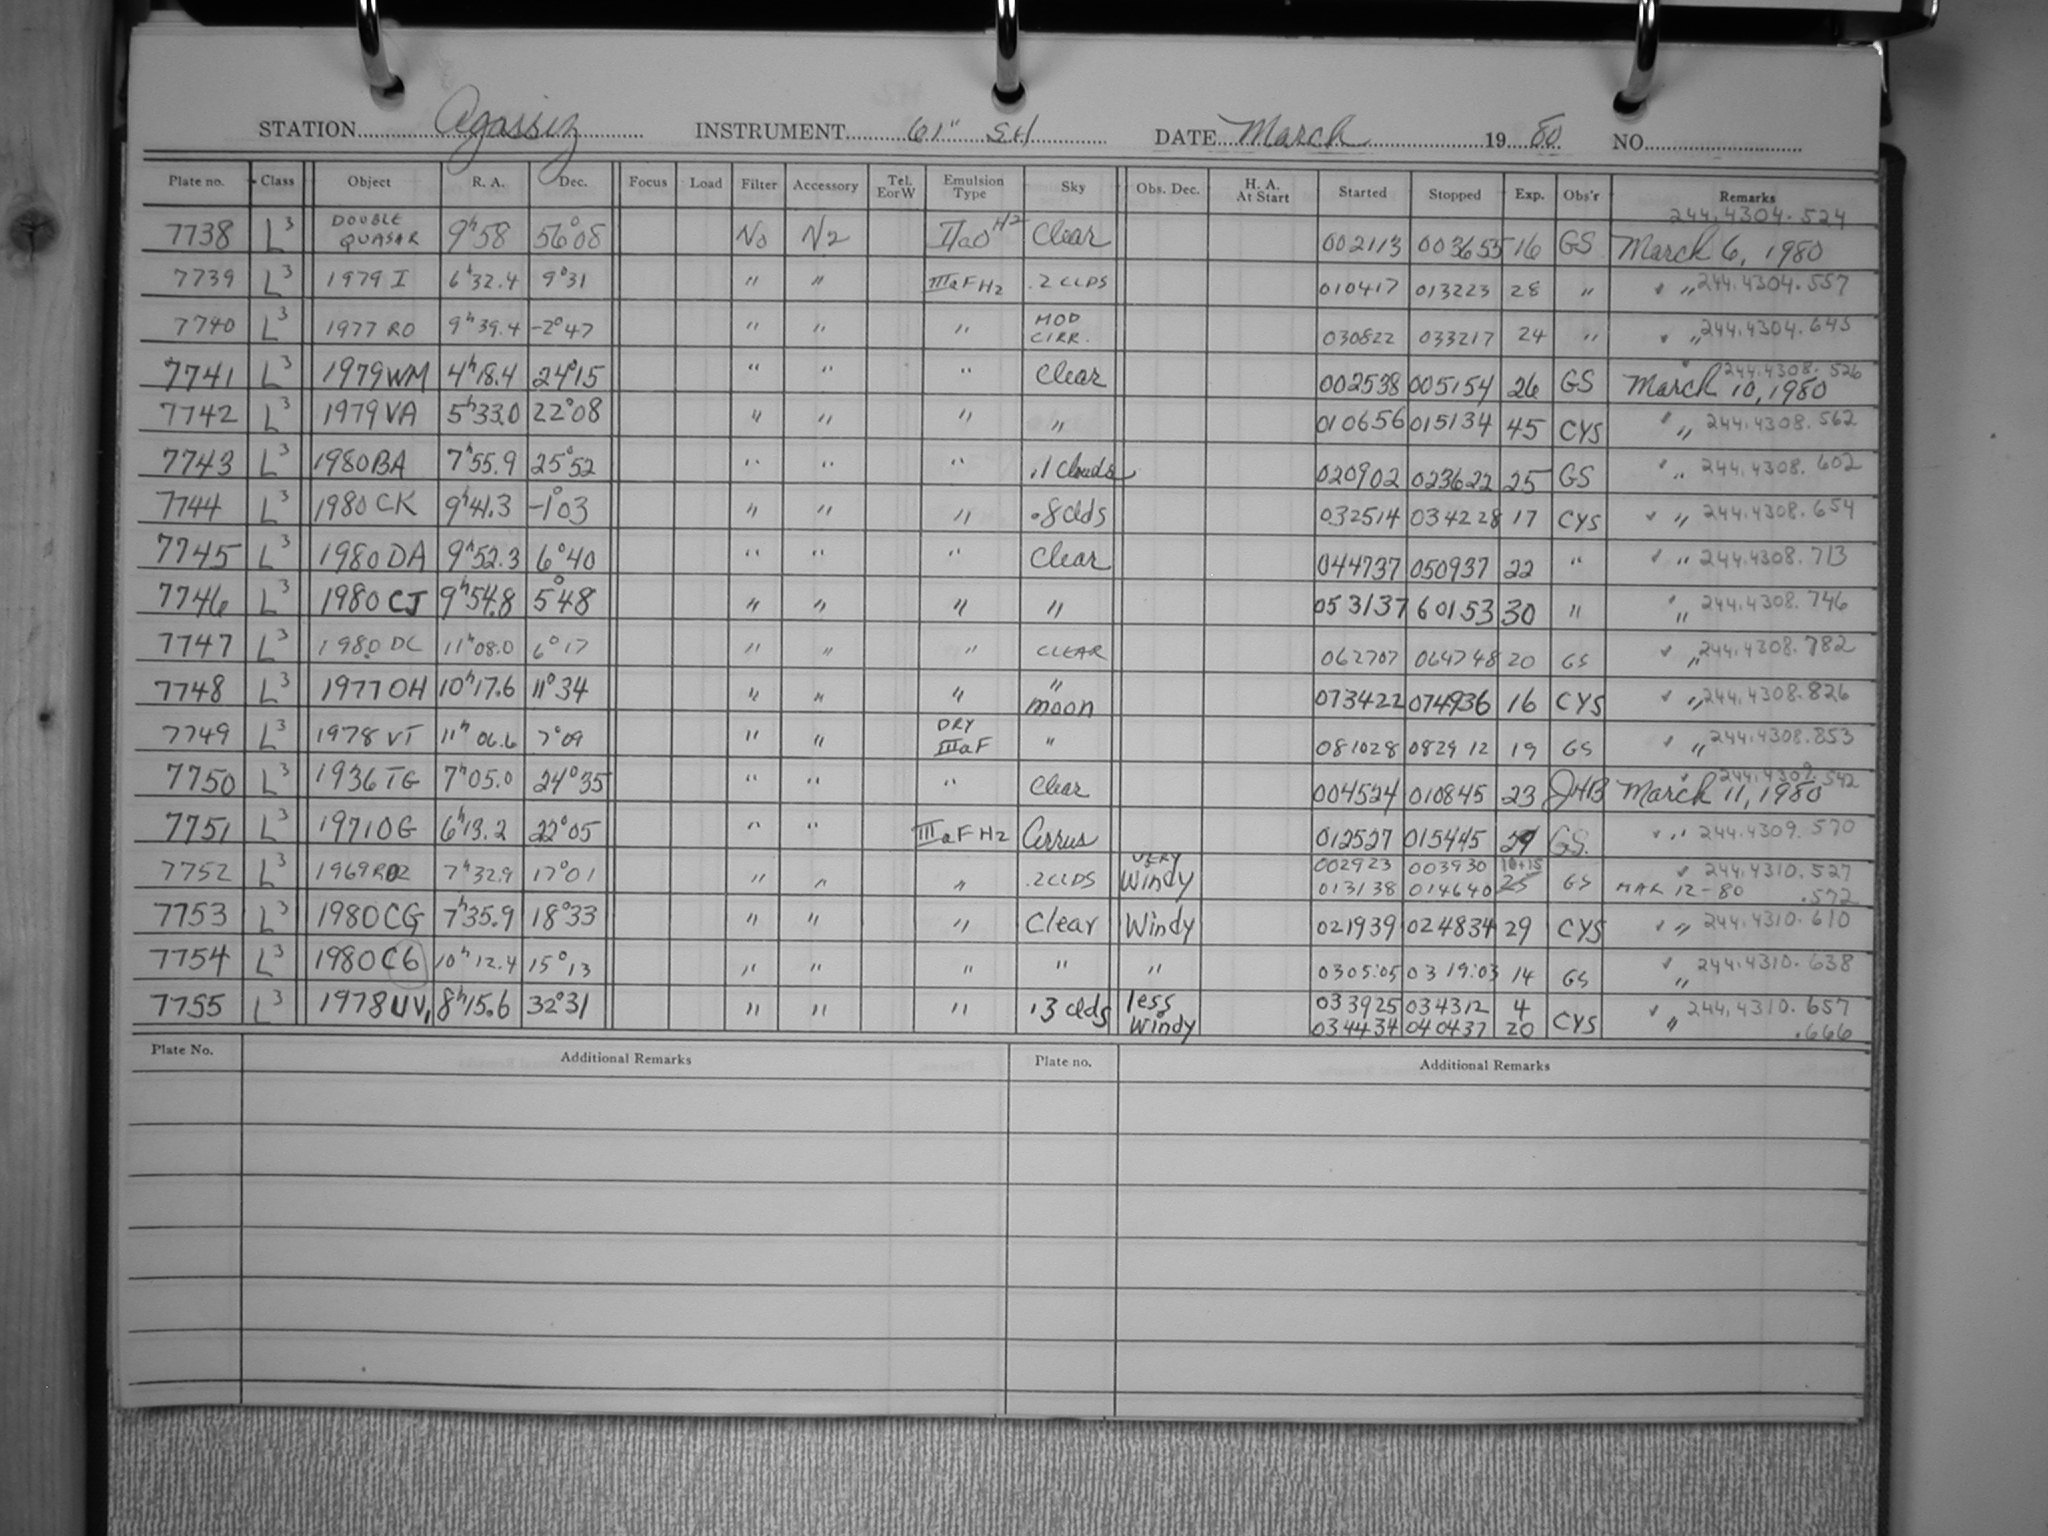 STATION Agassiz INSTRUMENT 61" SH DATE March 19 80 NO.
Plate no. Class Object R. A. Dec. Focus Load Filter Accessory Tel. E or W Emulsion Type Sky Obs. Dec. H. A. At Start Started Stopped Exp. Obs'r Remarks
7738 L3 DOUBLE QUASAR 9h58 56°08 No N2 IIaO H2 Clear 002113 003653 16 GS 244.4304.524 March 6, 1980
7739 L3 1979 I 6h32.4 9°31 " " IIIaF H2 .2 CLDS 010417 013223 28 " " 244.4304.557
7740 L3 1977 RO 9h39.4 -2°47 " " " MOD CIRR. 030822 033217 24 " " 244.4304.643
7741 L3 1979WM 4h18.4 24°15 " " " Clear 002538 005154 26 GS 244.4308.526 March 10, 1980
7742 L3 1979VA 5h33.0 22°08 " " " " 010656 015134 45 CYS " 244.4308.562
7743 L3 1980BA 7h55.9 25°52 " " " .1 Clouds 020902 023622 25 GS " 244.4308.602
7744 L3 1980 CK 9h41.3 -1°03 " " " .8 clds 032514 034228 17 CYS " 244.4308.654
7745 L3 1980 DA 9h52.3 6°40 " " " Clear 044737 050937 22 " " 244.4308.713
7746 L3 1980 CJ 9h54.8 5°48 " " " " 053137 60153 30 " " 244.4308.746
7747 L3 1980 DC 11h08.0 6°17 " " " CLEAR 062707 064748 20 GS " 244.4308.782
7748 L3 1977 OH 10h17.6 11°34 " " " " moon 073422 074936 16 CYS " 244.4308.826
7749 L3 1978 VT 11h06.6 7°09 " " DRY IIIaF " 081028 082912 19 GS " 244.4308.853
7750 L3 1936 TG 7h05.0 24°35 " " " Clear 004524 010845 23 JHB 244.4309.542 March 11, 1980
7751 L3 1971OG 6h13.2 22°05 " " IIIaF H2 Cirrus 012527 015445 29 GS " 244.4309.570
7752 L3 1969R02 7h32.9 17°01 " " " .2 CLDS VERY Windy 002923 003930 10+15 GS " 244.4310.527
013138 014640 25 MAR 12-80 .572
7753 L3 1980CG 7h35.9 18°33 " " " Clear Windy 021939 024834 29 CYS " 244.4310.610
7754 L3 1980 C6 10h12.4 15°13 " " " " " 0305:05 0319:03 14 GS " 244.4310.638
7755 L3 1978UV1 8h15.6 32°31 " " " .3 clds less Windy 033925 034312 4 CYS " 244.4310.657
034434 040437 20 .666
Plate No. Additional Remarks Plate no. Additional Remarks